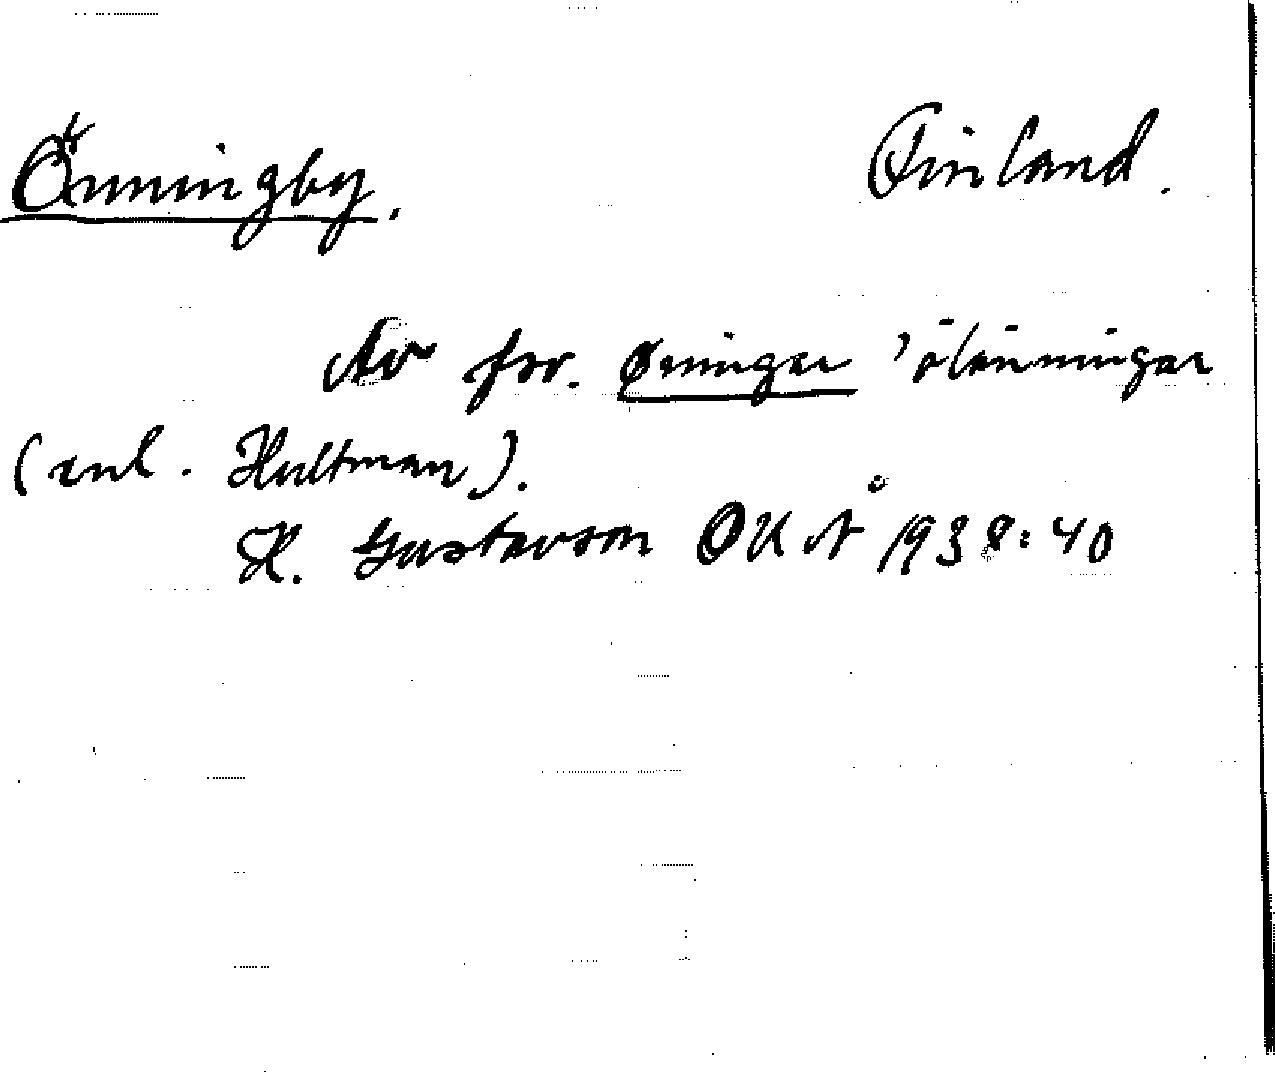 Önningby. Finland.
Av fsv. øningar 'ölänningar
(enl. Hultman).
H. Gustavson OUÅ 1938:40